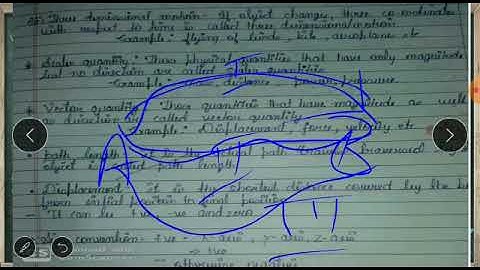 Three dimensional motion - If object changes, three co-ordinates
with respect to time is called three dimensional motion.
Example : flying of birds, kite, aeroplane etc
Scalar quantity : Those physical quantities that have only magnitude
but no direction are called scalar quantities
Example : distance, pressure
Vector quantity : Those quantities that have magnitude as well
as direction are called vector quantity
Example : Displacement, force, velocity etc
A B
path length : It is the actual path traversed by
object is called path length
Displacement : It is the shortest distance covered by the
from initial position to final position
It can be +ve -ve and zero
convention - +ve - x-axis, y-axis, z-axis
→ +ve
otherwise negative
CS